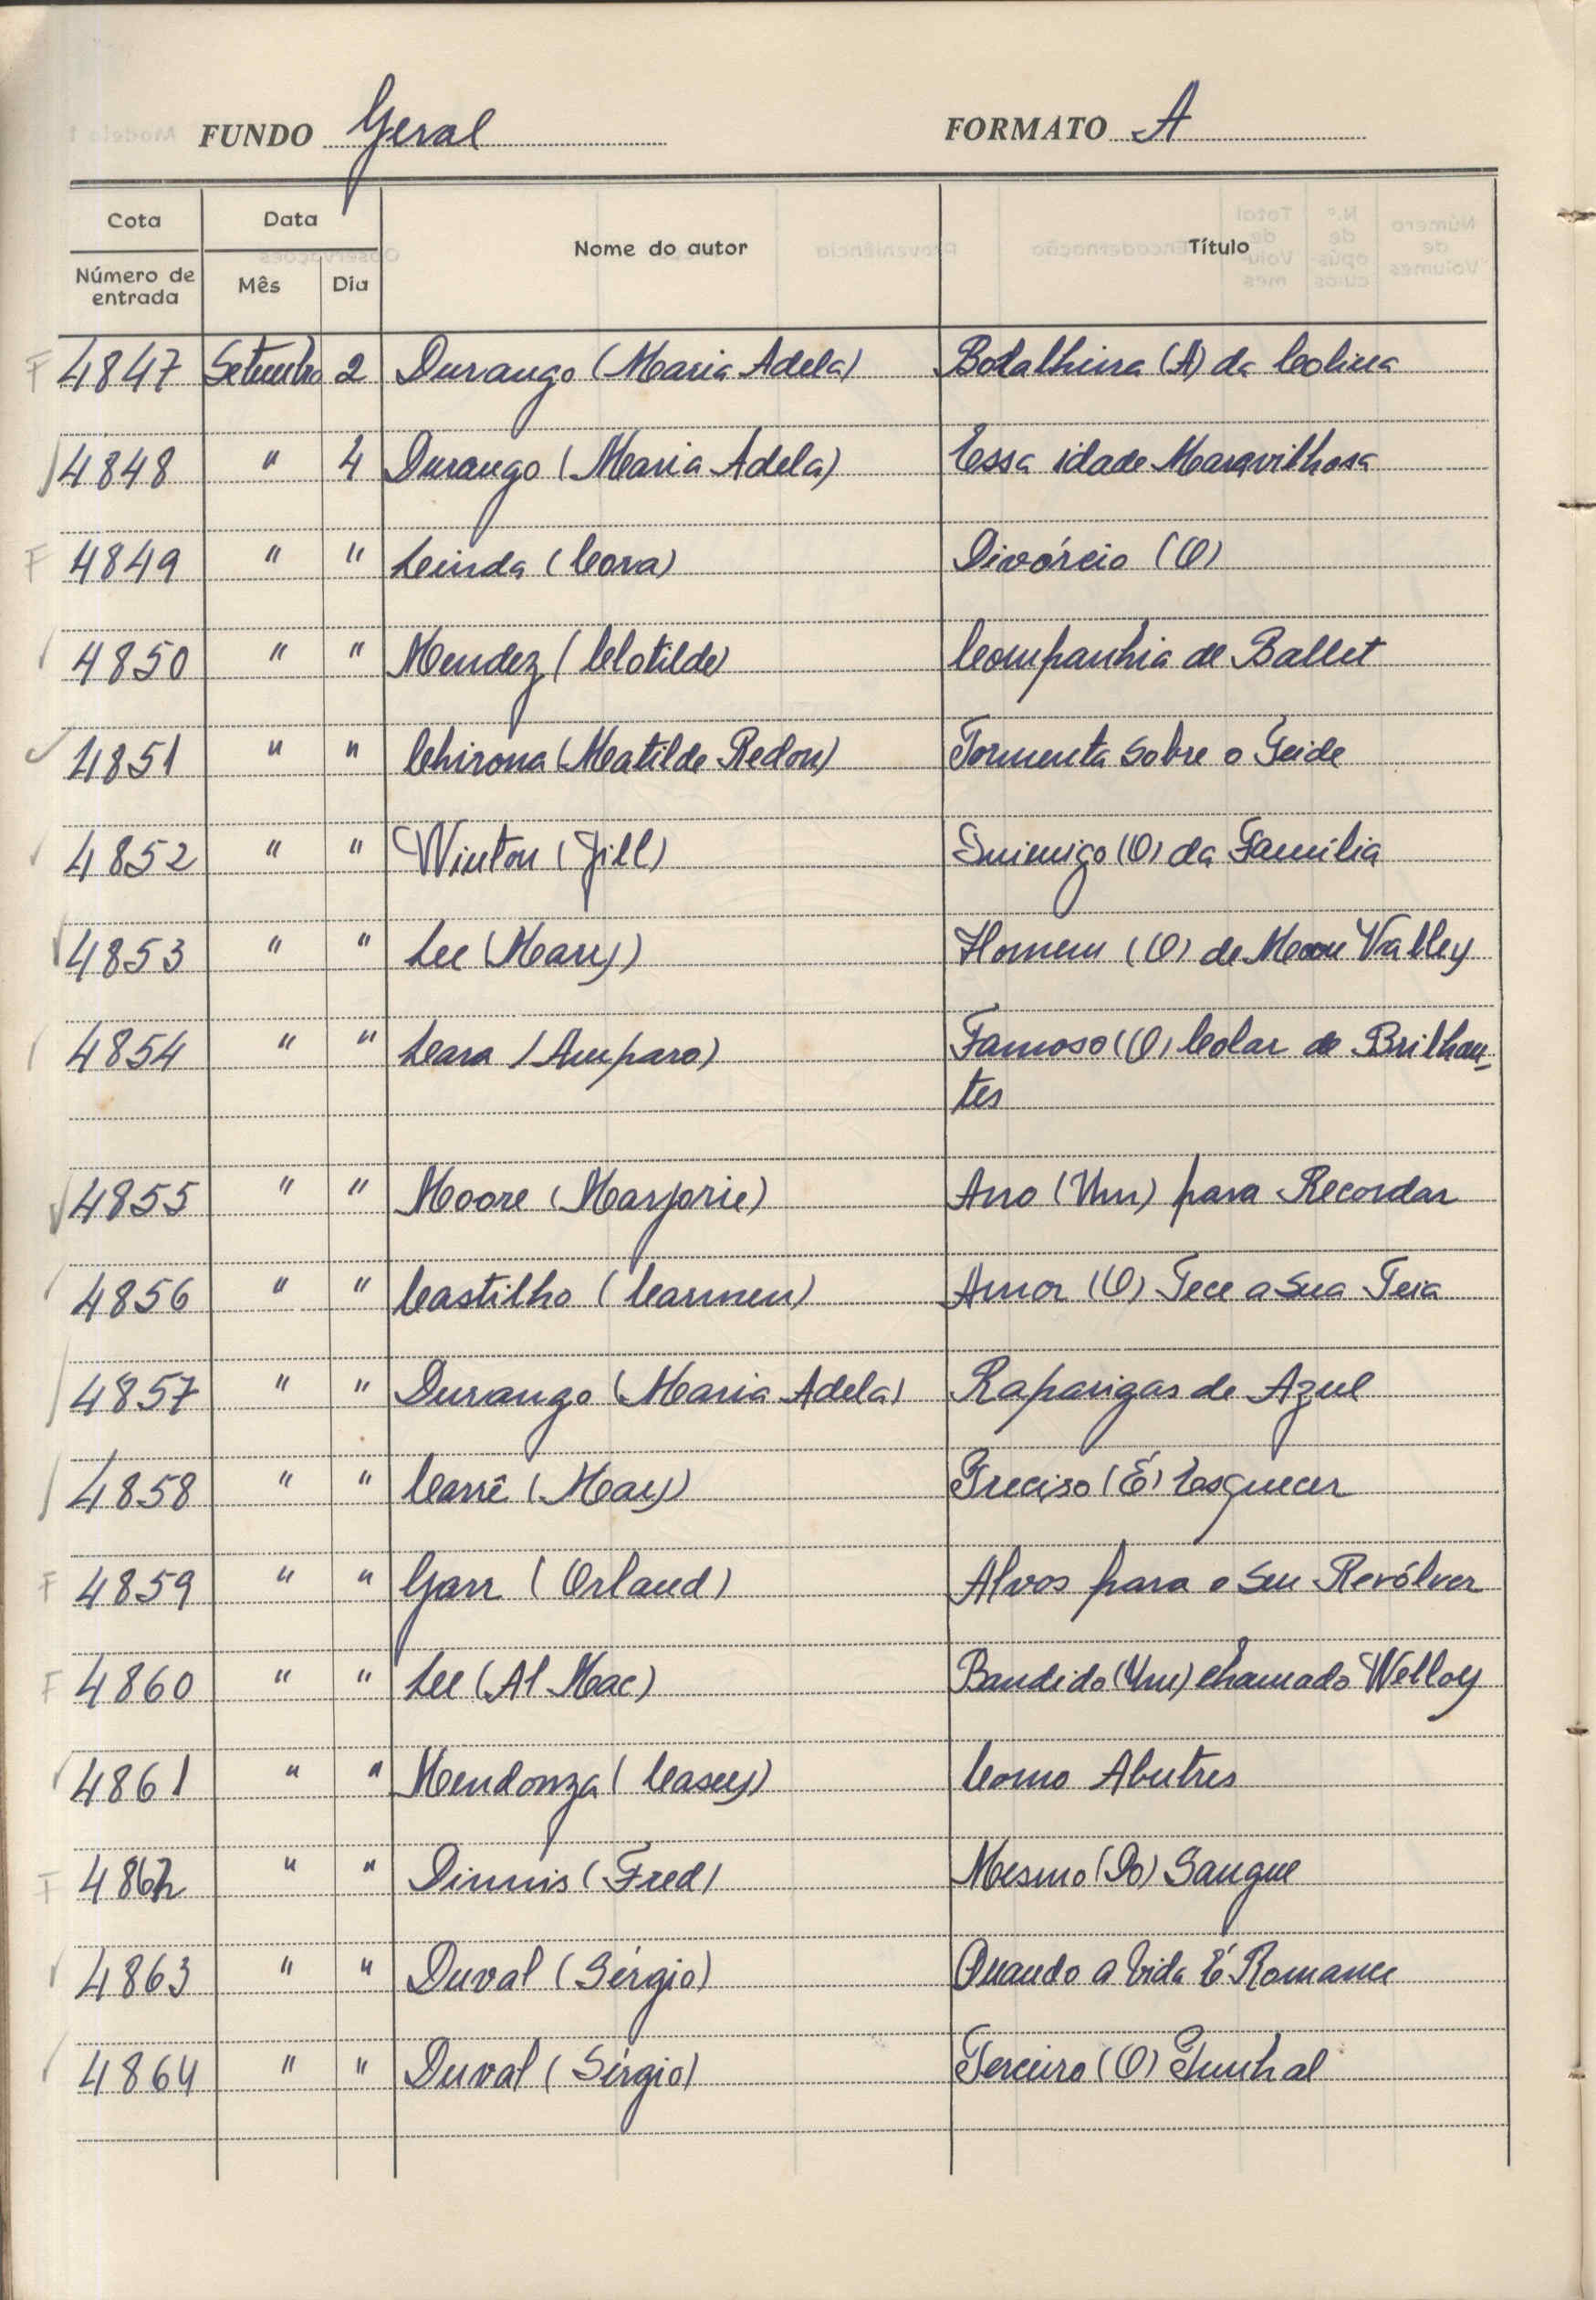 FUNDO Geral FORMATO A
Cota Data Nome do autor Título
Número de entrada Mês Dia
F 4847 Setembro 2 Durango (Maria Adela) Batalheira (A) da Colina
4848 " 4 Durango (Maria Adela) Essa idade Maravilhosa
F 4849 " " Leinda (Cora) Divórcio (O)
4850 " " Mendez (Clotilde) Companhia de Ballet
4851 " " Chirona (Matilde Redon) Tormenta sobre o Geide
4852 " " Winton (Jill) Inimigo (O) da Família
4853 " " Lee (Mary) Homem (O) de Moon Valley
4854 " " Lara (Amparo) Famoso (O) Colar de Brilhan-
tes
4855 " " Moore (Marjorie) Ano (Um) para Recordar
4856 " " Castilho (Carmen) Amor (O) Tece a Sua Teia
4857 " " Durango (Maria Adela) Raparigas de Azul
4858 " " Carrê (May) Preciso (É) Esquecer
F 4859 " " Garr (Orland) Alvos para o Seu Revólver
F 4860 " " Lee (Al Mac) Bandido (Um) chamado Welloy
4861 " " Mendonza (Casey) Como Abutres
F 4862 " " Dinnis (Fred) Mesmo (Do) Sangue
4863 " " Duval (Sérgio) Quando a Vida É Romance
4864 " " Duval (Sérgio) Terceiro (O) Punhal